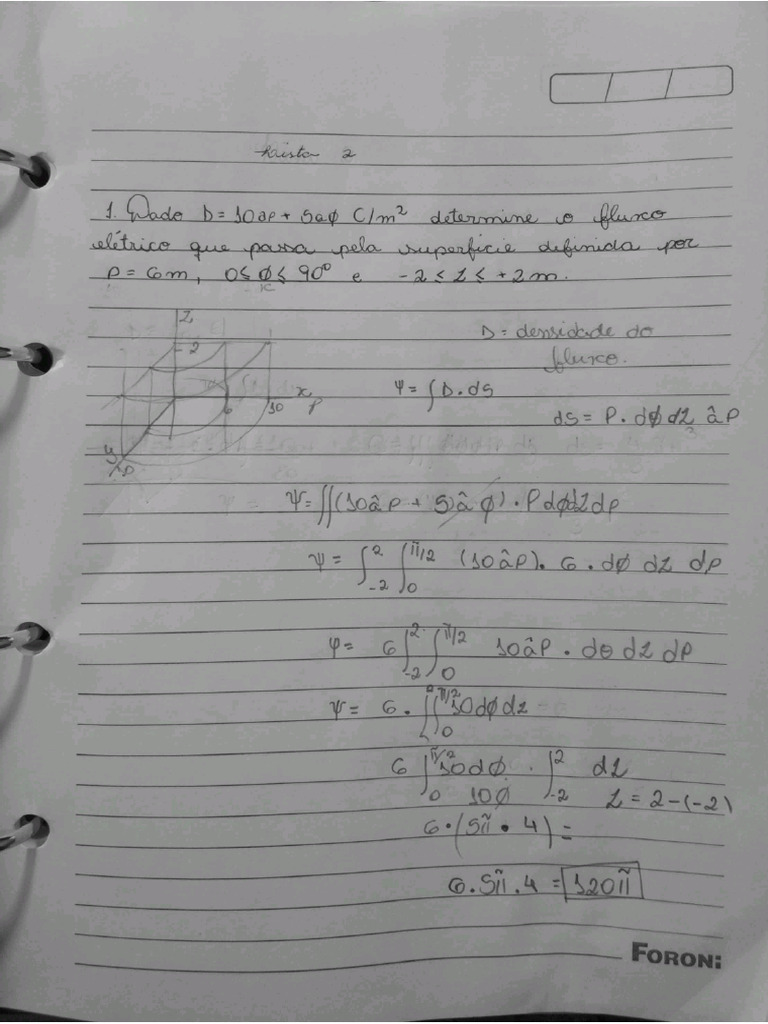 Lista 2
1. Dado D = 10aρ + 5aφ C/m² determine o fluxo
elétrico que passa pela superfície definida por
ρ = 6m, 0 ≤ φ ≤ 90° e -2 ≤ z ≤ +2m.
z
2
x
6
10
ρ
y
D = densidade do
fluxo.
Ψ = ∫ D . ds
ds = ρ . dφ dz âρ
Ψ = ∬ (10âρ + 5âφ) . ρ dφ dz dρ
Ψ = ∫₋₂² ∫₀^π/2 (10âρ) . 6 . dφ dz dρ
Ψ = 6 ∫₋₂² ∫₀^π/2 10âρ . dθ dz dρ
Ψ = 6 . ∫∫₀^π/2 10dφdz
6 ∫₀^π/2 10dφ . ∫₋₂² dz
10φ z = 2-(-2)
6 . (5π . 4) =
6 . 5π . 4 = 120π
FORONI